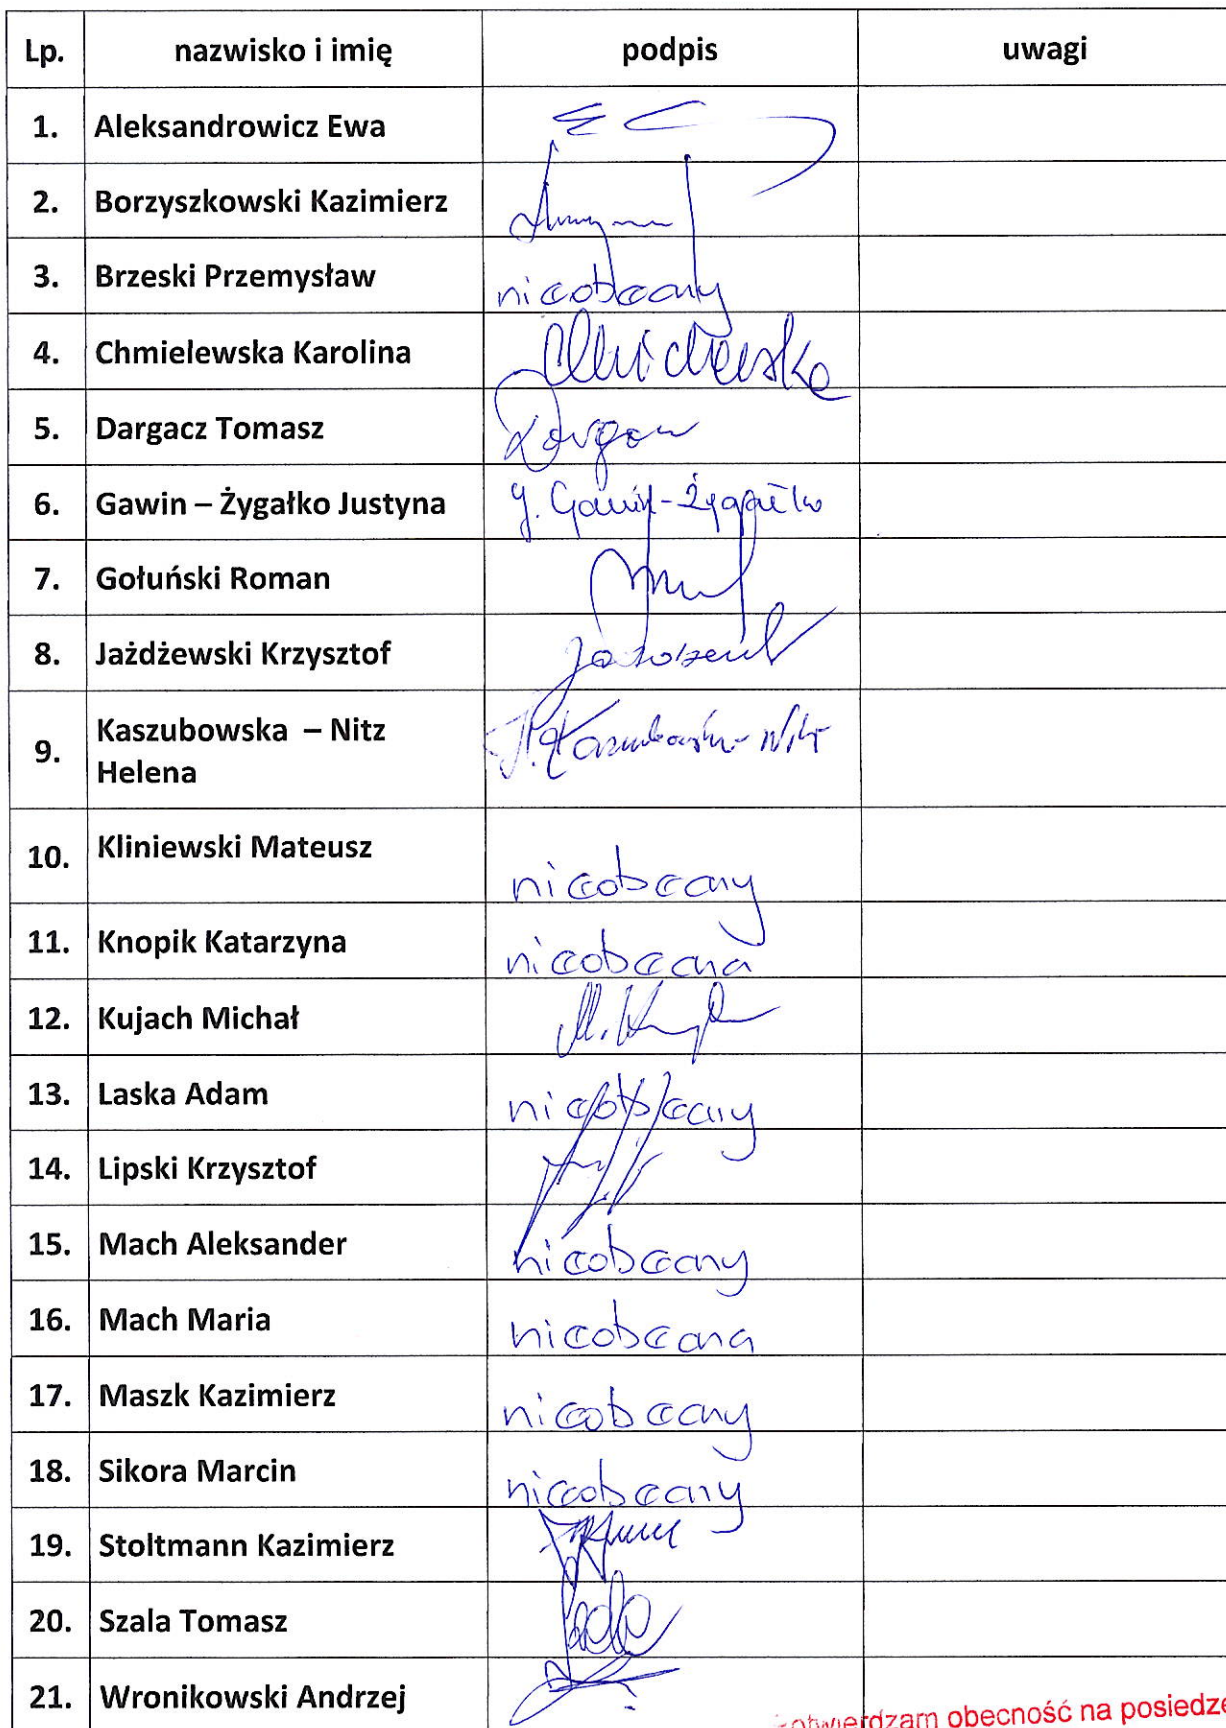 Lp. nazwisko i imię podpis uwagi
1. Aleksandrowicz Ewa
2. Borzyszkowski Kazimierz
3. Brzeski Przemysław nieobecny
4. Chmielewska Karolina Chmielewska
5. Dargacz Tomasz
6. Gawin – Żygałko Justyna J. Gawin-Żygałko
7. Gołuński Roman
8. Jażdżewski Krzysztof
9. Kaszubowska – Nitz
Helena H. Kaszubowska-Nitz
10. Kliniewski Mateusz nieobecny
11. Knopik Katarzyna nieobecna
12. Kujach Michał
13. Laska Adam nieobecny
14. Lipski Krzysztof
15. Mach Aleksander nieobecny
16. Mach Maria nieobecna
17. Maszk Kazimierz nieobecny
18. Sikora Marcin nieobecny
19. Stoltmann Kazimierz
20. Szala Tomasz
21. Wronikowski Andrzej
obecność na